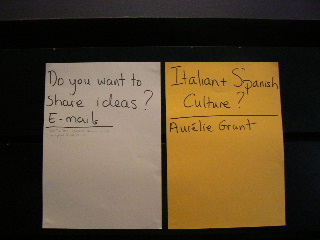 Do you want to
share ideas?
E-mails
Italian + Spanish
Culture?
Aurélie Grant